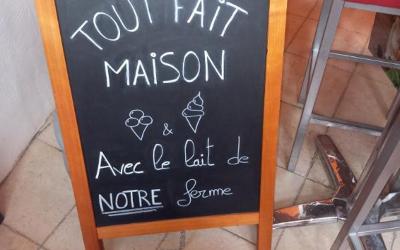 TOUT FAIT
MAISON
&
Avec le lait de
NOTRE ferme